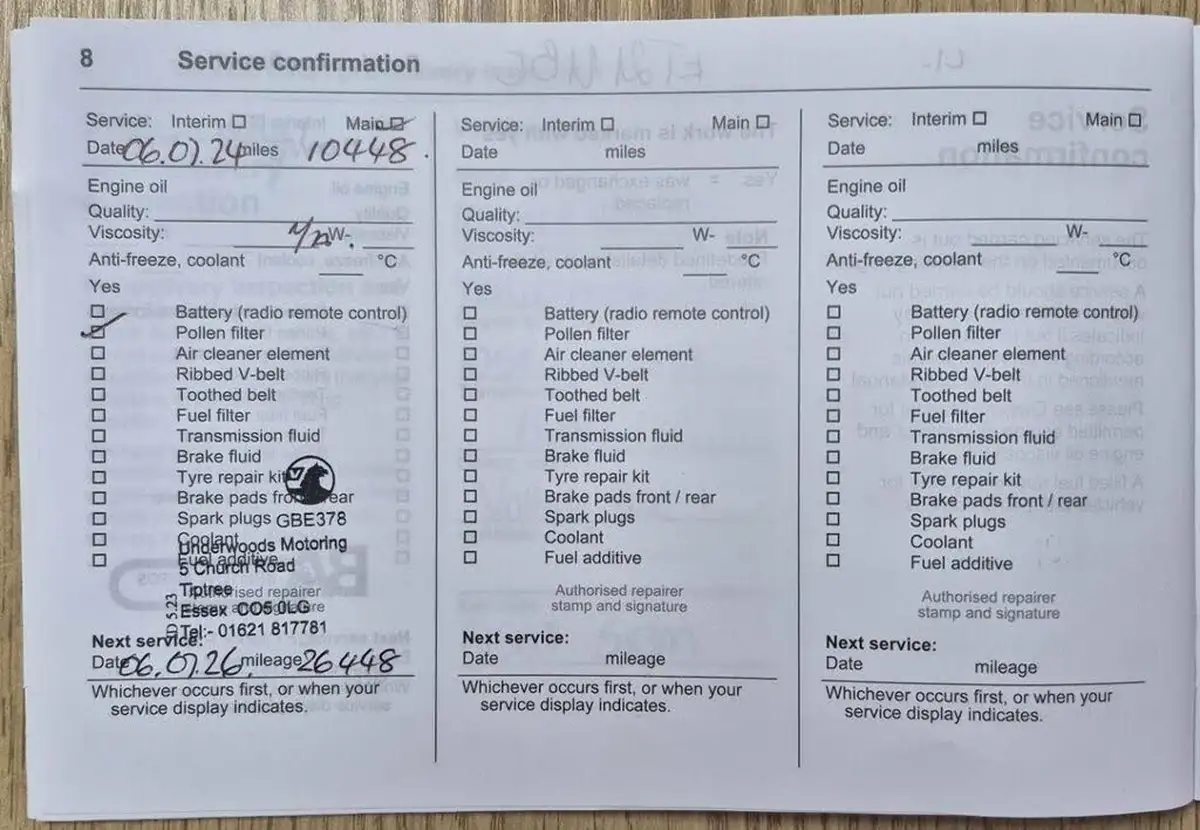 8 Service confirmation
Service: Interim Main
Date 06.07.24 miles 10448.
Engine oil
Quality:
Viscosity: W-
Anti-freeze, coolant °C
Yes
Battery (radio remote control)
Pollen filter
Air cleaner element
Ribbed V-belt
Toothed belt
Fuel filter
Transmission fluid
Brake fluid
Tyre repair kit
Brake pads front / rear
Spark plugs GBE378
Coolant
Underwoods Motoring
Fuel additive
5 Church Road
Tiptree
Authorised repairer
stamp and signature
Essex CO5 0LG
Tel:- 01621 817781
Next service:
Date 06.07.26. mileage 26448
Whichever occurs first, or when your
service display indicates.
Service: Interim Main
Date miles
Engine oil
Quality:
Viscosity: W-
Anti-freeze, coolant °C
Yes
Battery (radio remote control)
Pollen filter
Air cleaner element
Ribbed V-belt
Toothed belt
Fuel filter
Transmission fluid
Brake fluid
Tyre repair kit
Brake pads front / rear
Spark plugs
Coolant
Fuel additive
Authorised repairer
stamp and signature
Next service:
Date mileage
Whichever occurs first, or when your
service display indicates.
Service: Interim Main
Date miles
Engine oil
Quality:
Viscosity: W-
Anti-freeze, coolant °C
Yes
Battery (radio remote control)
Pollen filter
Air cleaner element
Ribbed V-belt
Toothed belt
Fuel filter
Transmission fluid
Brake fluid
Tyre repair kit
Brake pads front / rear
Spark plugs
Coolant
Fuel additive
Authorised repairer
stamp and signature
Next service:
Date mileage
Whichever occurs first, or when your
service display indicates.